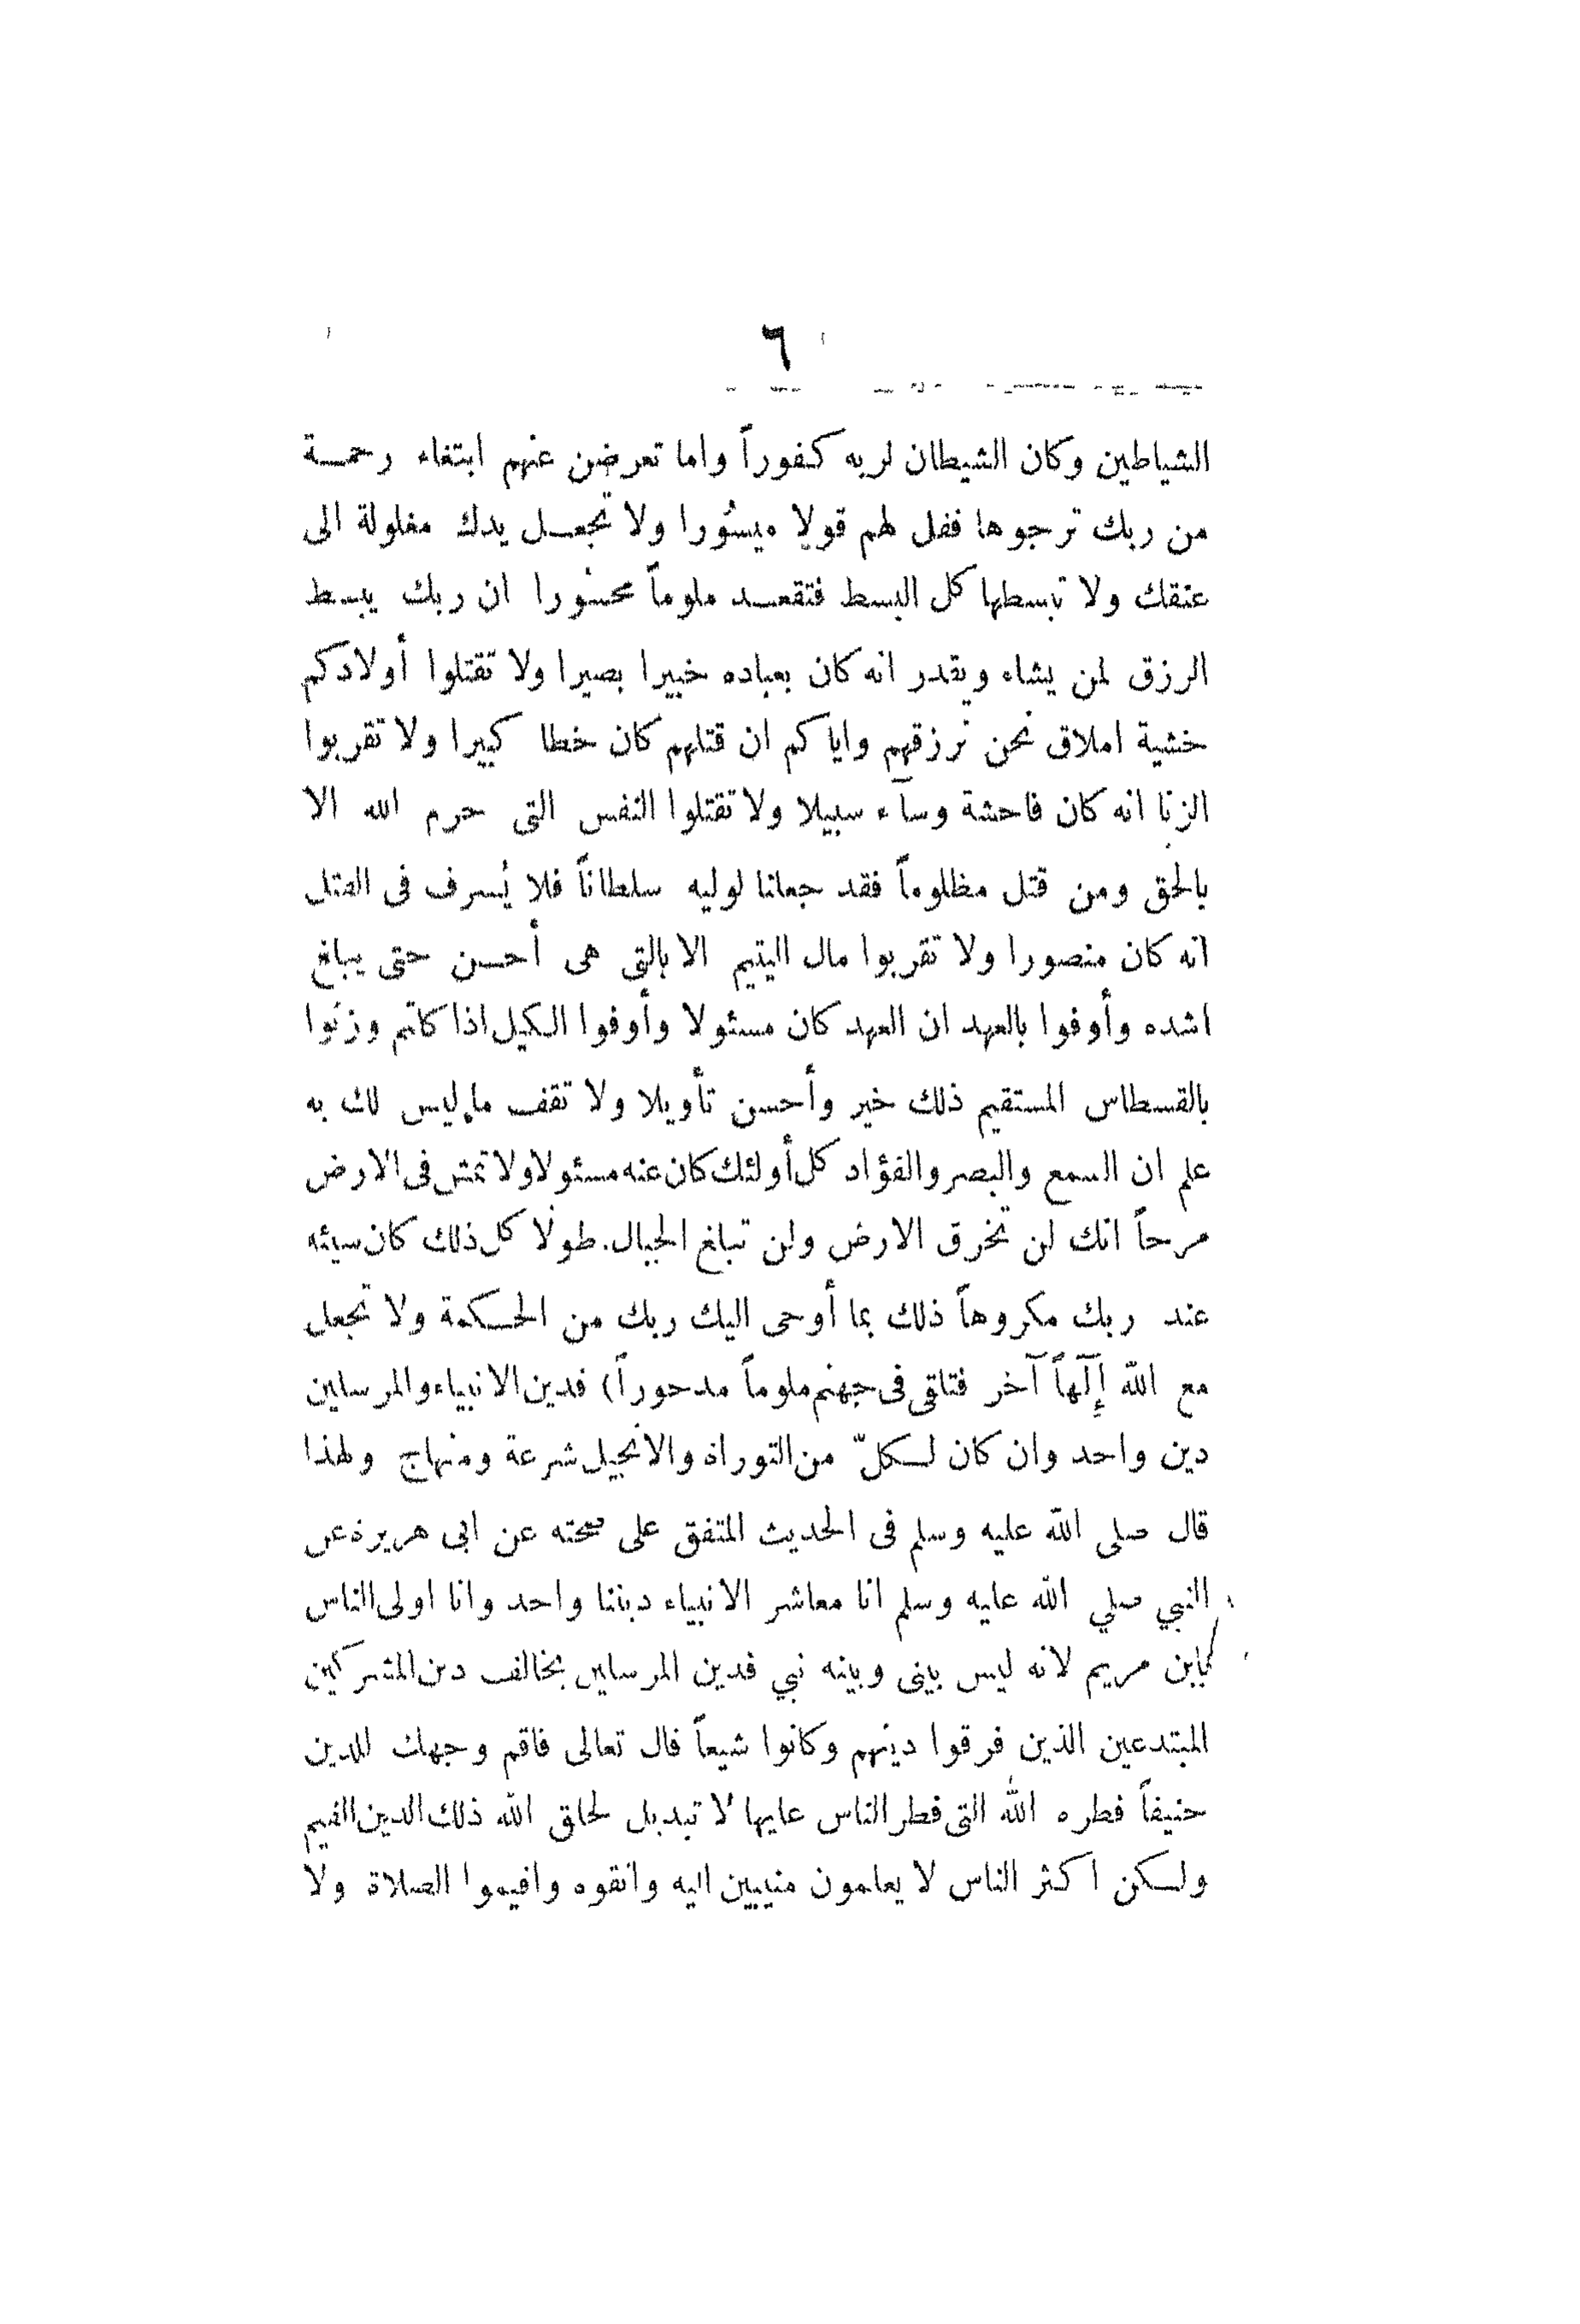 ٦
الشياطين وكان الشيطان لربه كفوراً واما تعرضن عنهم ابتغاء رحمة
من ربك ترجوها فقل لهم قولا ميسورا ولا تجعل يدك مغلولة الى
عنقك ولا تبسطها كل البسط فتقعد ملوماً محسورا ان ربك يبسط
الرزق لمن يشاء ويقدر انه كان بعباده خبيرا بصيرا ولا تقتلوا أولادكم
خشية املاق نحن نرزقهم واياكم ان قتلهم كان خطا كبيرا ولا تقربوا
الزنا انه كان فاحشة وسآء سبيلا ولا تقتلوا النفس التى حرم الله الا
بالحق ومن قتل مظلوماً فقد جعلنا لوليه سلطاناً فلا يُسرف فى القتل
انه كان منصورا ولا تقربوا مال اليتيم الا بالتى هى أحسن حتى يبلغ
اشده وأوفوا بالعهد ان العهد كان مسئولا وأوفوا الكيل اذا كلتم وزنوا
بالقسطاس المستقيم ذلك خير وأحسن تأويلا ولا تقف ما ليس لك به
علم ان السمع والبصر والفؤاد كل أولئك كان عنه مسئولا ولا تمش فى الارض
مرحاً انك لن تخرق الارض ولن تبلغ الجبال طولا كل ذلك كان سيئه
عند ربك مكروهاً ذلك مما أوحى اليك ربك من الحكمة ولا تجعل
مع الله إِلَهاً آخر فتلقى فى جهنم ملوماً مدحوراً) فدين الانبياء والمرسلين
دين واحد وان كان لكلّ من التوراة والانجيل شرعة ومنهاج ولهذا
قال صلى الله عليه وسلم فى الحديث المتفق على صحته عن ابى هريرة عن
النبي صلي الله عليه وسلم انا معاشر الانبياء ديننا واحد وانا اولى الناس
بابن مريم لانه ليس بينى وبينه نبي فدين المرسلين يخالف دين المشركين
المبتدعين الذين فرقوا دينهم وكانوا شيعاً قال تعالى فاقم وجهك للدين
حنيفاً فطره الله التى فطر الناس عليها لا تبديل لخلق الله ذلك الدين القيم
ولكن اكثر الناس لا يعلمون منيبين اليه واتقوه واقيموا الصلاة ولا